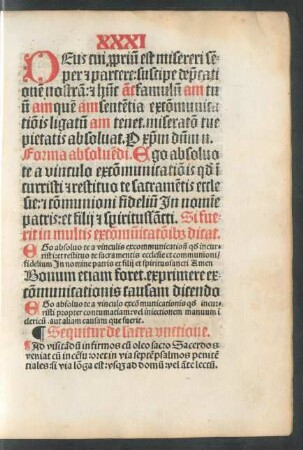 XXXI
DEus cui ꝓpriũ est misereri sē-
per ⁊ parcere: suscipe dep̄cati
onē nostrā: ⁊ hūc āc famulũ am tu
ũ am quē am sentētia excōmunica
tiōis ligatũ am tenet. miseratō tue
pietatis absoluat. P xp̄m dūm n.
Forma absoluēdi. Ego absoluo
te a vinculo excōmunicatiōis qd̄ ī
curristi ⁊ restituo te sacramētis eccle
sie: ⁊ cōmunioni fideliũ In nomīe
patris: et filij ⁊ spiritussācti. Si fue
rit in multis excōmūicatōibꝰ dicat.
Ego absoluo te a vinculis excommunicationũ qs incur
risti ⁊ restituo te sacramentis ecclesie et communioni
fidelium In nomine patris et filij et spiritussancti Amen
Bonum etiam foret. exprimere ex
cōmunicationis causam dicendo
Ego absoluo te a vinculo excōmunicationis qd̄ incur
risti propter contumaciam: vel iniectionem manuum ī
clericũ. aut aliam causam que fuerit.
¶ Sequitur de sacra vnctione.
¶ Ad visitādũ infirmos cũ oleo sacro Sacerdos
veniat cũ incēsu: ⁊ oret in via septē psalmos penitē
tiales: si via lōga est: vsqꝫ ad domũ vel āte lectũ.